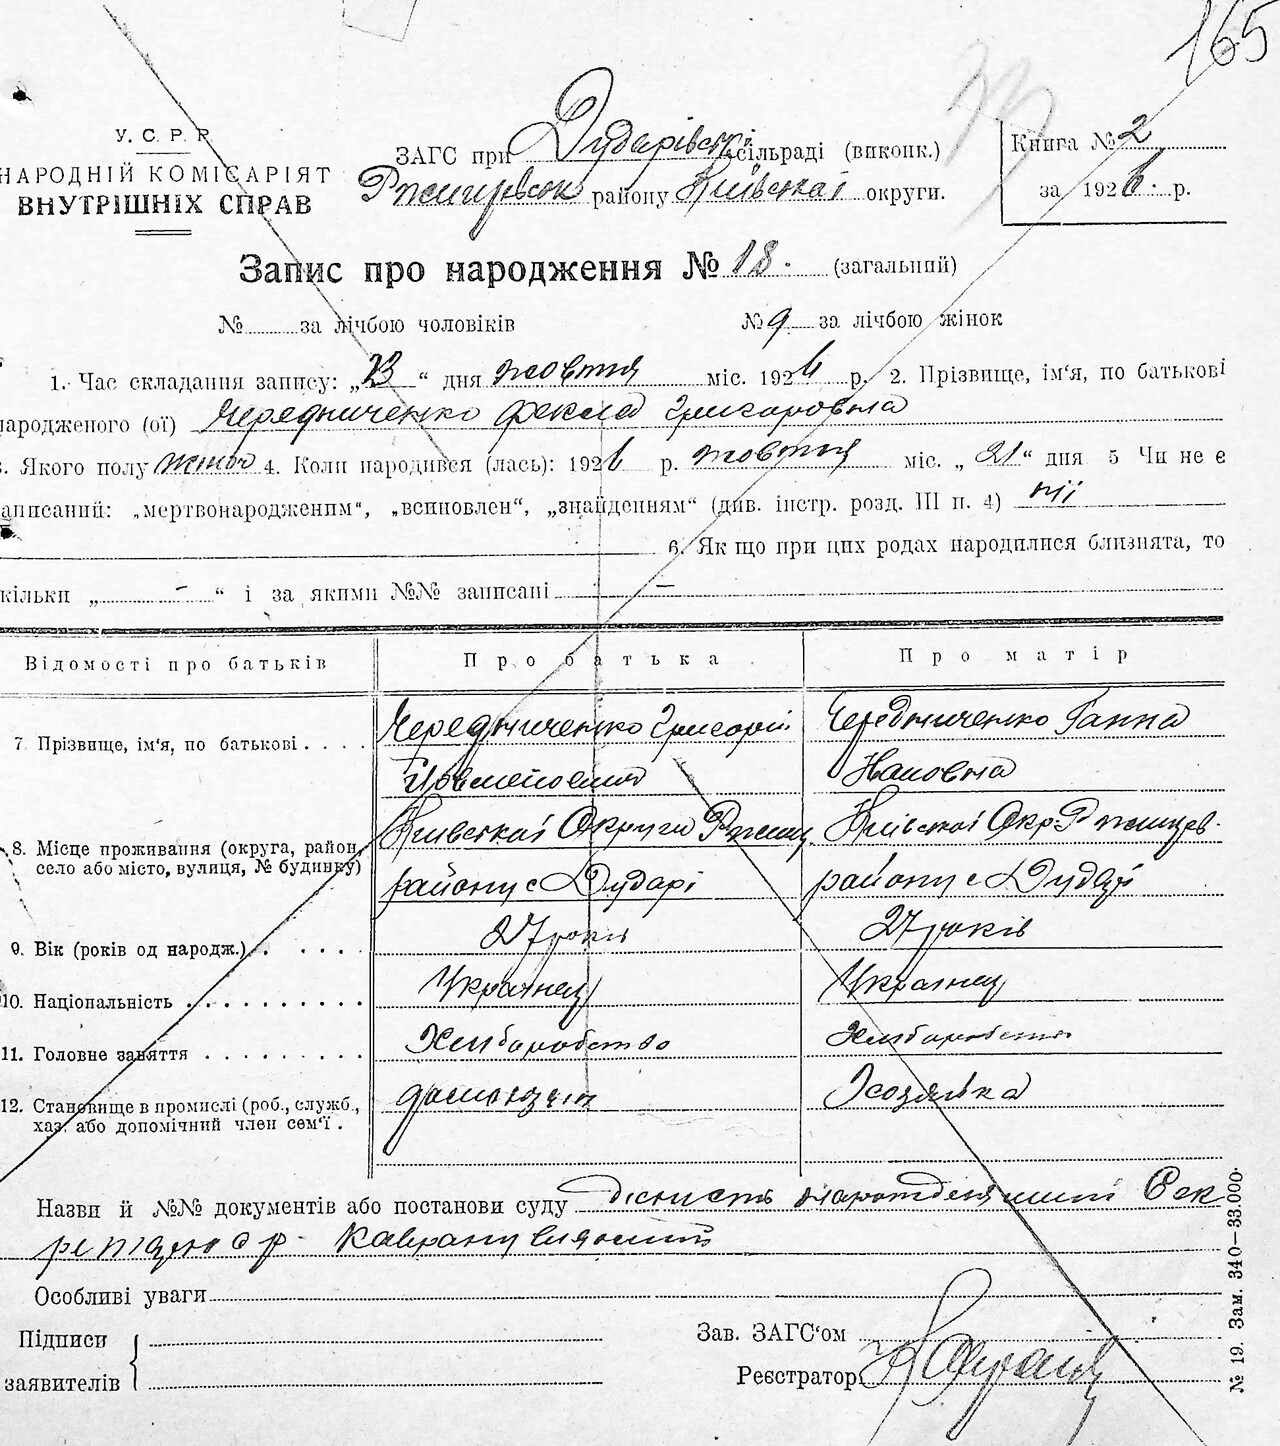 165
У. С. Р. Р.
НАРОДНІЙ КОМІСАРІЯТ
ВНУТРІШНІХ СПРАВ
ЗАГС при Дударівській сільраді (виконк.)
району Київської округи.
Книга № 2
за 1926 р.
Запис про народження № 18. (загальний)
№ за лічбою чоловіків
№ 9 за лічбою жінок
1. Час складання запису: „23“ дня жовтня міс. 1926 р. 2. Прізвище, ім'я, по батькові
народженого (ої) Чередниченко Фекла Григоровна
3. Якого полу жіноч 4. Коли народився (лась): 1926 р. жовтня міс. „21“ дня 5 Чи не є
записаний: „мертвонародженим“, „всиновлен“, „знайденням“ (див. інстр. розд. III п. 4) ні
6. Як що при цих родах народилися близнята, то
скільки „ - “ і за якими №№ записані —
Відомості про батьків Про батька Про матір
7. Прізвище, ім'я, по батькові Чередниченко Григорій Чередниченко Ганна
8. Місце проживання (округа, район, село або місто, вулиця, № будинку) Київської Округи Київської Окр.
району с Дударі району с Дударі
9. Вік (років од народж.) 27 років 27 років
10. Національність Українец Українец
11. Головне заняття Хлиборобство Хлиборобство
12. Становище в промислі (роб., служб., хаз. або допомічний член сем'ї. Хозяйка
Назви й №№ документів або постанови суду
Особливі уваги
Підписи
заявителів
Зав. ЗАГС'ом
Реєстратор
№ 19. Зам. 340—33.000.